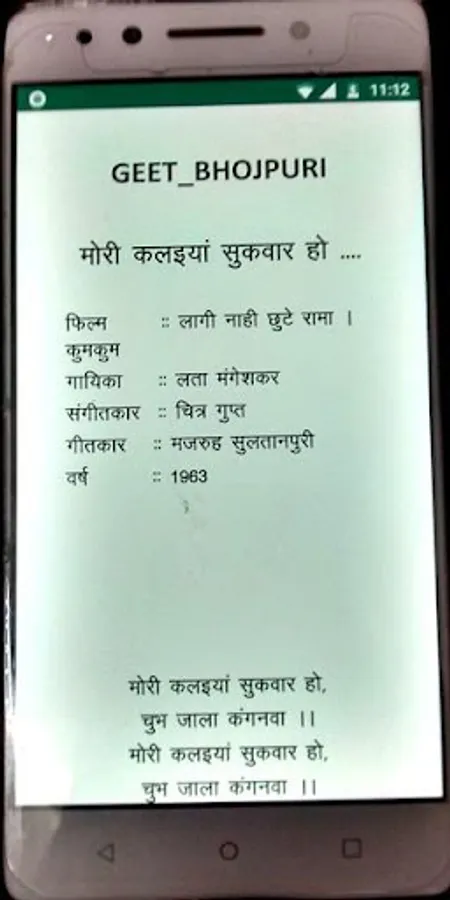 11:12
GEET_BHOJPURI
मोरी कलइयां सुकवार हो ....
फिल्म :: लागी नाही छुटे रामा ।
कुमकुम
गायिका :: लता मंगेशकर
संगीतकार :: चित्र गुप्त
गीतकार :: मजरुह सुलतानपुरी
वर्ष :: 1963
मोरी कलइयां सुकवार हो,
चुभ जाला कंगनवा ।।
मोरी कलइयां सुकवार हो,
चुभ जाला कंगनवा ।।